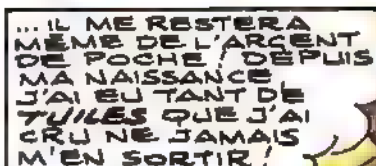 ... IL ME RESTERA
MÊME DE L'ARGENT
DE POCHE / DEPUIS
MA NAISSANCE
J'AI EU TANT DE
TUILES QUE J'AI
CRU NE JAMAIS
M'EN SORTIR !